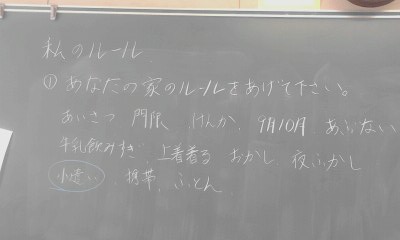 私のルール
① あなたの家のルールをあげて下さい。
あいさつ 門限 けんか、9月10月 あぶない
牛乳飲みすぎ、上着着る おかし 夜ふかし
小遣い、携帯、ふとん